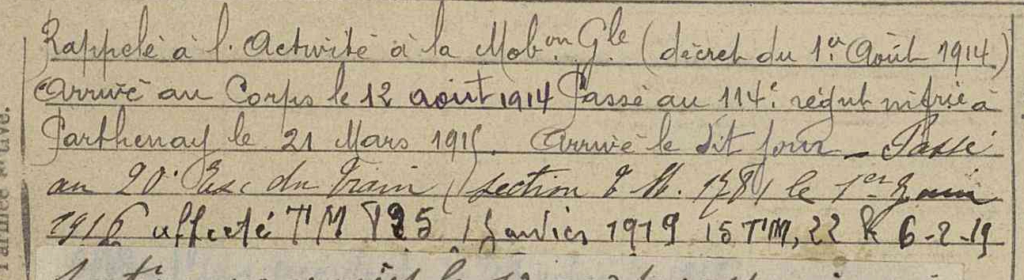 Rappelé à l'Activité à la Mob.on Gle (décret du 1er Août 1914.)
Arrivé au Corps le 12 août 1914 Passé au 114e régnt nfrie à
Parthenay le 21 Mars 1915. Arrivé le dit jour _ Passé
au 20e Esc du Train (section T M. 178) le 1er Juin
1916 affecté TM 195 1 Janvier 1919 15 TM, 22 le 6-2-19